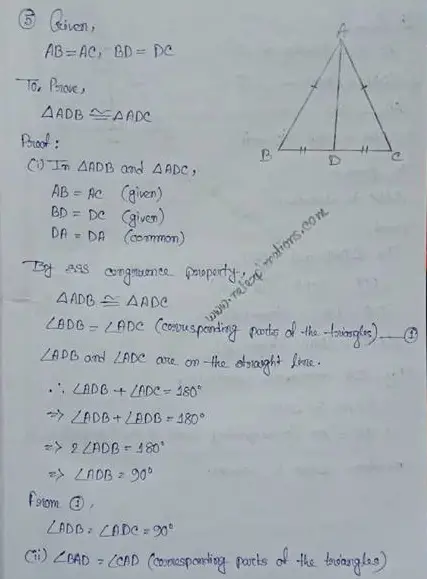 ⑤ Given,
AB = AC, BD = DC
To, Prove,
△ADB ≅ △ADC
Proof :
(i) In △ADB and △ADC,
AB = AC (given)
BD = DC (given)
DA = DA (common)
By SSS congruence property,
△ADB ≅ △ADC
∠ADB = ∠ADC (corrusponding parts of the triangles) — ①
∠ADB and ∠ADC are on the straight line.
∴ ∠ADB + ∠ADC = 180°
=> ∠ADB + ∠ADB = 180°
=> 2∠ADB = 180°
=> ∠ADB = 90°
From ①,
∠ADB = ∠ADC = 90°
(ii) ∠BAD = ∠CAD (corresponding parts of the triangles)
A
B D C